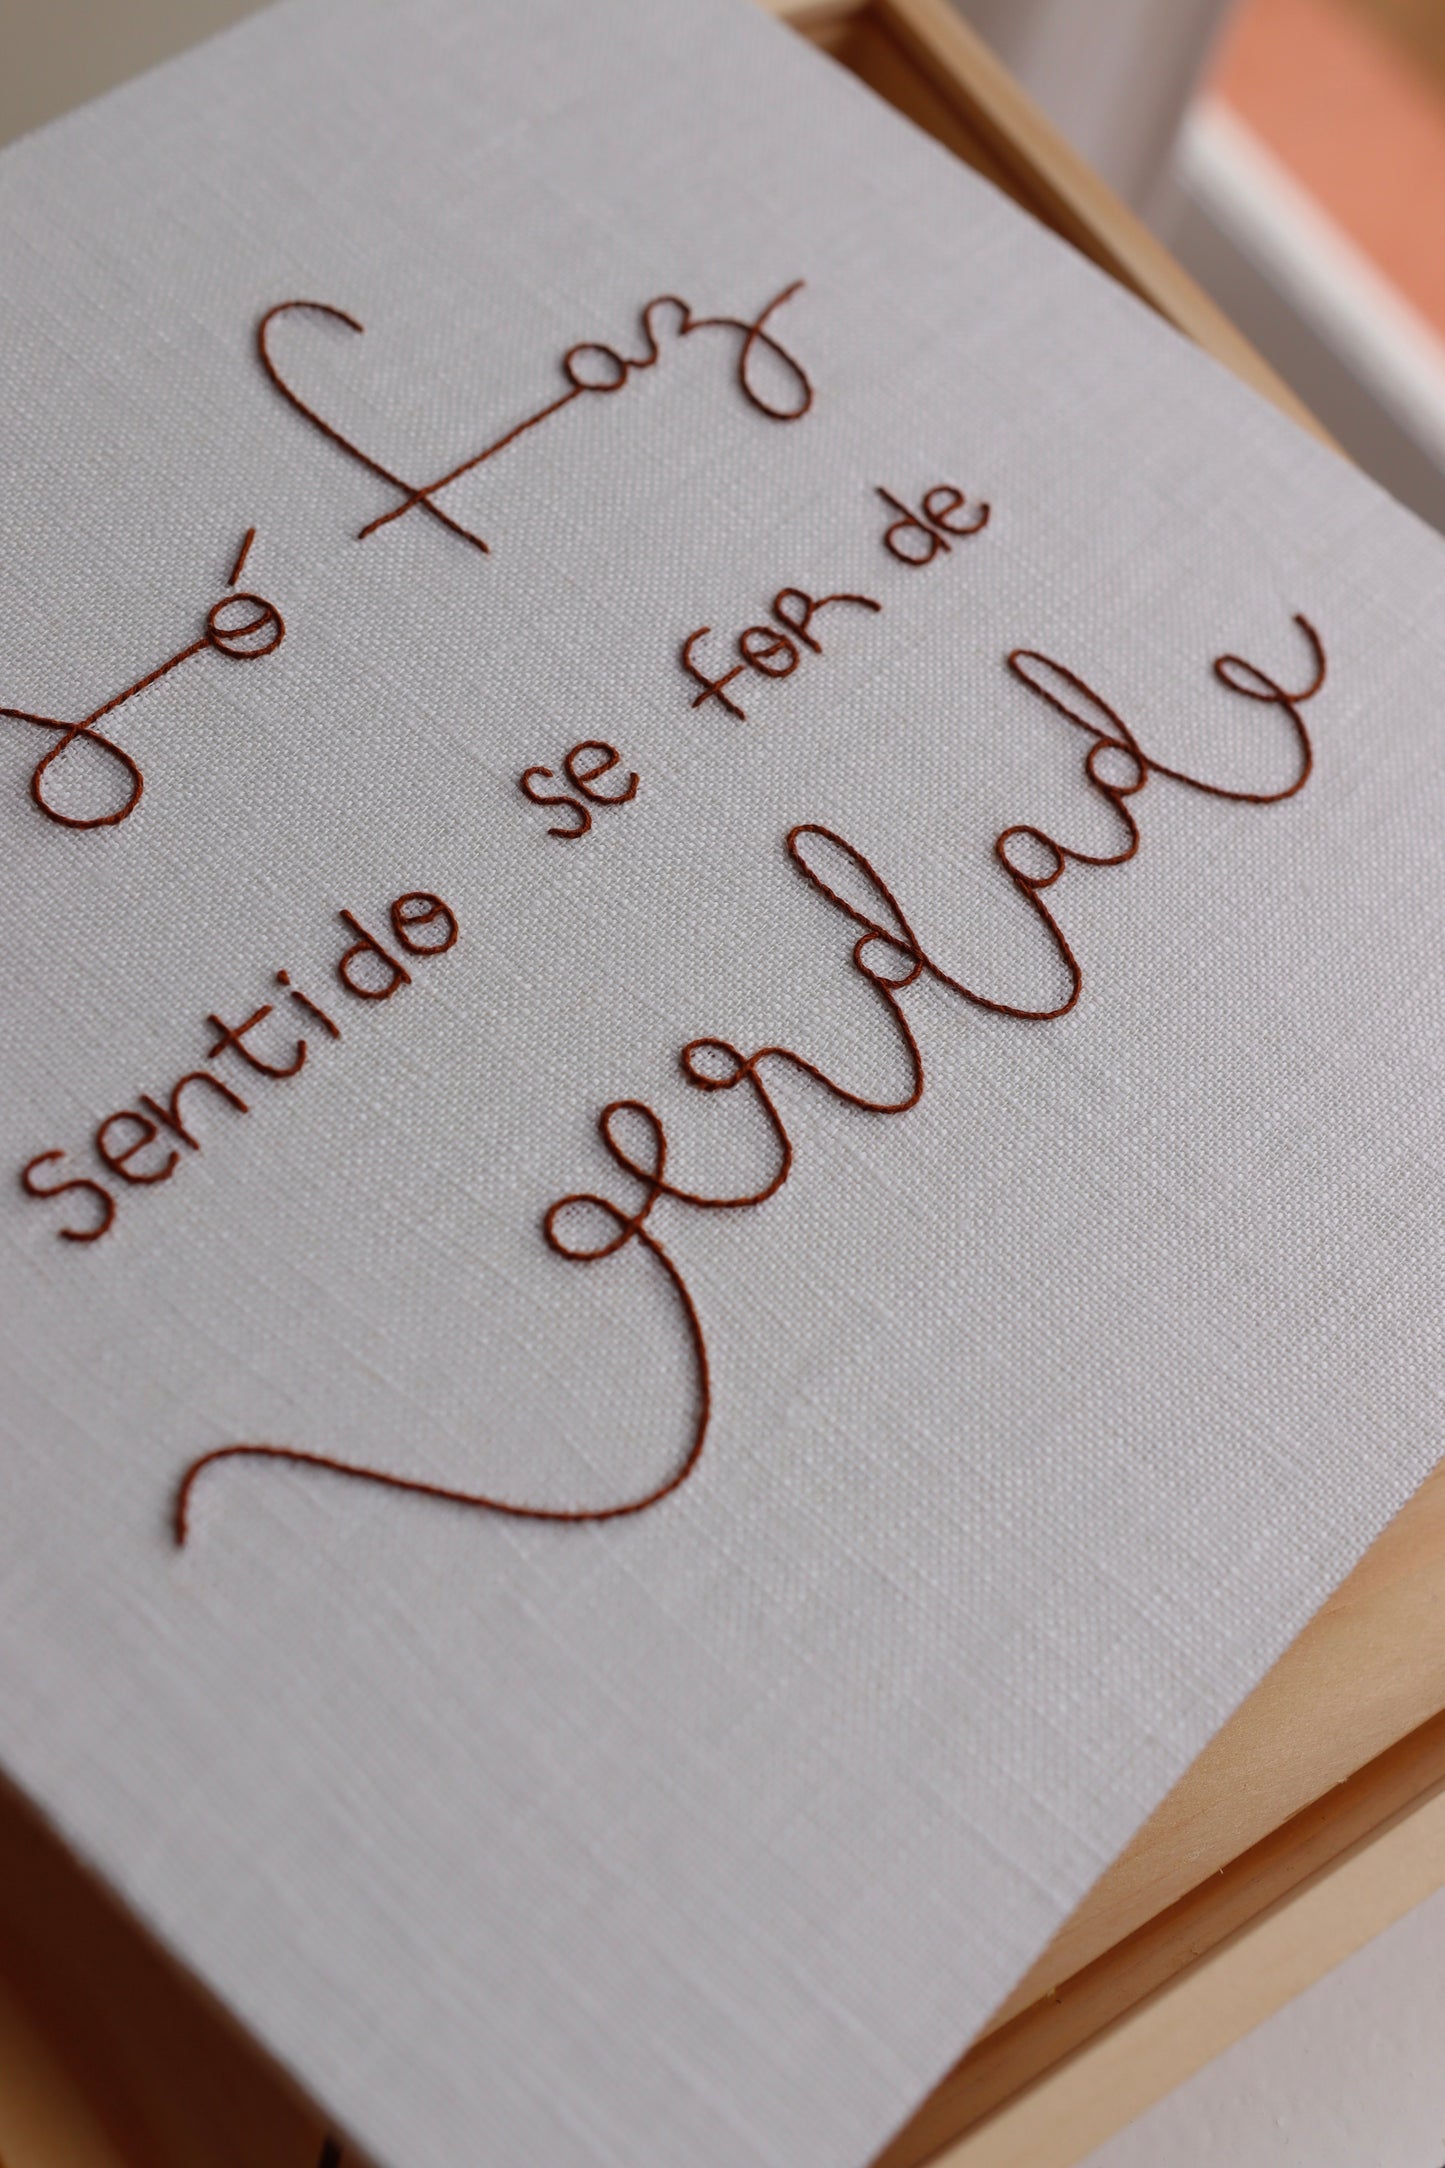 só faz
sentido se for de
verdade